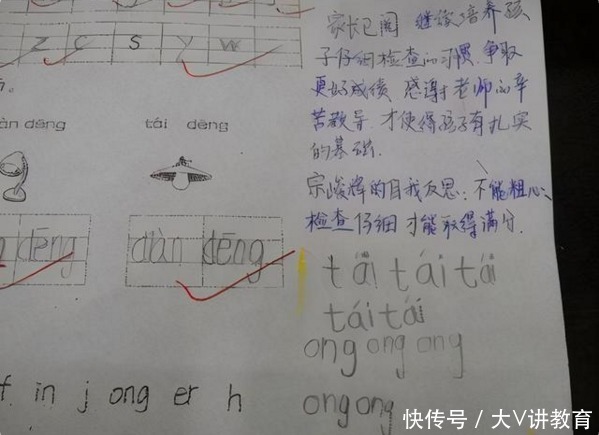 z c s y w
àn dēng
tái dēng
dēng
diàn dēng
f in j ong er h
家长已阅 继续培养孩
子仔细检查的习惯.争取
更好成绩 感谢老师的辛
苦教导.才使得孩子有扎实
的基础.
宗峻牌的自我反思:不能粗心、
检查仔细才能取得满分.
tái tái tái
tái tái
ong ong ong
ong ong
快传号 / 大V讲教育